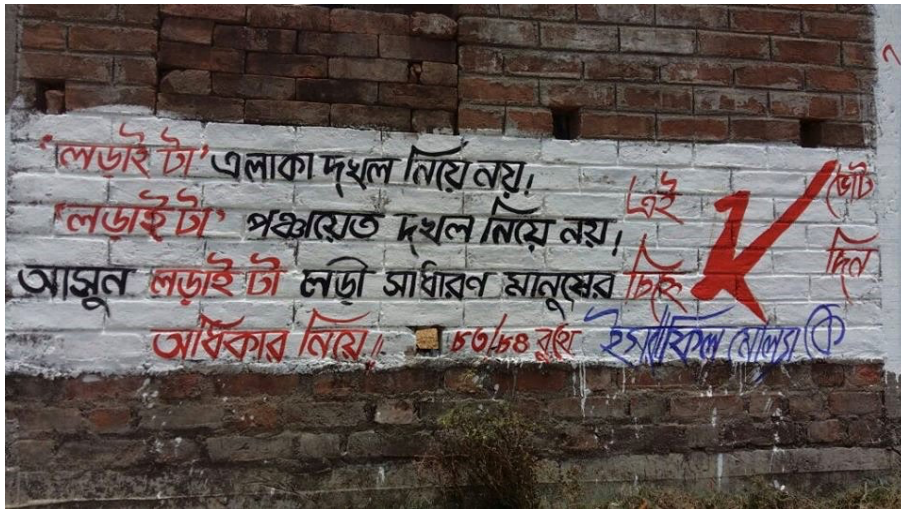 'লড়াই টা' এলাকা দখল নিয়ে নয়।
'লড়াই টা' পঞ্চায়েত দখল নিয়ে নয়।
আসুন লড়াই টা লড়ী সাধারণ মানুষের
অধিকার নিয়ে॥
এই
চিহ্নে
ভোট
দিন
৮৩/৮৪ বুথে ইসরাফিল মোল্লা কে